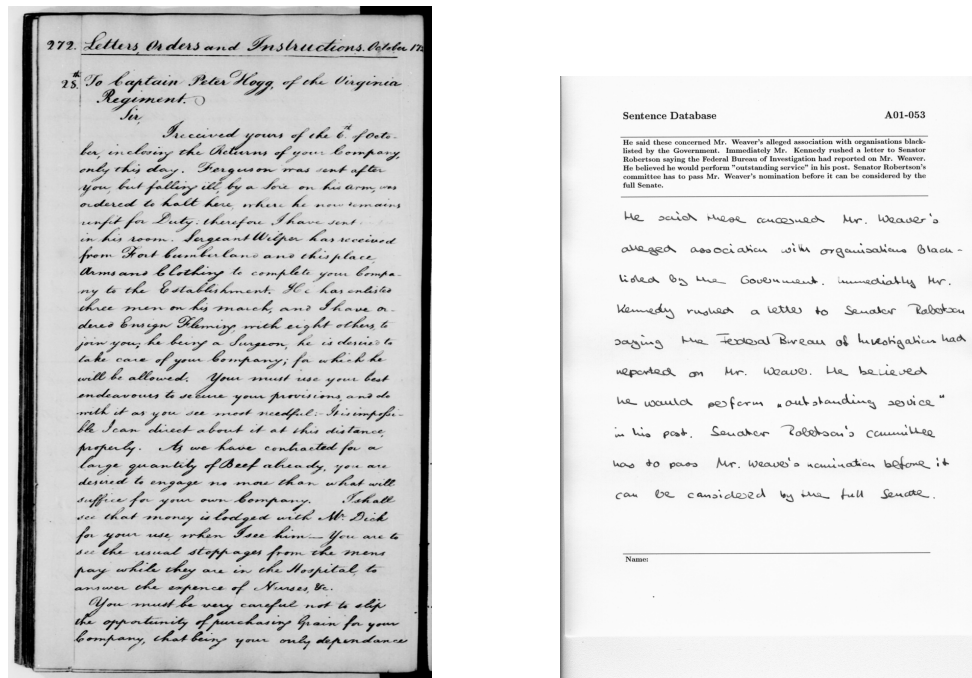 272. Letters, Orders and Instructions. October 17
28th To Captain Peter Hogg, of the Virginia
Regiment.
Sir,
I received yours of the 6th of Octo-
ber, inclosing the Returns of your Company,
only this day. Ferguson was sent after
you, but falling ill, by a Sore on his arm, was
ordered to halt here, where he now remains
unfit for Duty: therefore I have sent
in his room. Sergeant Wilper has received
from Fort Cumberland and this place
Arms and Clothing to complete your Compa-
ny to the Establishment. He has enlisted
three men on his march, and I have or-
dered Ensign Fleming, with eight others, to
join you; he being a Surgeon, he is desired to
take care of your Company; for which he
will be allowed. Your must use your best
endeavours to secure your provisions, and do
with it as you see most needful:- It is impossi-
ble I can direct about it at this distance,
properly. As we have contracted for a
large quantity of Beef already, you are
desired to engage no more than what will
suffice for your own Company. I shall
see that money is lodged with Mr. Dick
for your use, when I see him— You are to
see the usual stoppages from the mens
pay while they are in the Hospital, to
answer the expence of Nurses, &c.
You must be very careful not to slip
the opportunity of purchasing Grain for your
Company, that being your only dependance
Sentence Database A01-053
He said these concerned Mr. Weaver's alleged association with organisations black-
listed by the Government. Immediately Mr. Kennedy rushed a letter to Senator
Robertson saying the Federal Bureau of Investigation had reported on Mr. Weaver.
He believed he would perform "outstanding service" in his post. Senator Robertson's
committee has to pass Mr. Weaver's nomination before it can be considered by the
full Senate.
He said these concerned Mr. Weaver's
alleged association with organisations black-
listed by the Government. immediatly Mr.
Kennedy rushed a letter to Senator Robetson
saying the Federal Bureau of Investigation had
reported on Mr. Weaver. He believed
he would perform „outstanding service"
in his post. Senator Robetson's committee
has to pass Mr. Weaver's nomination before it
can be considered by the full Senate.
Name: